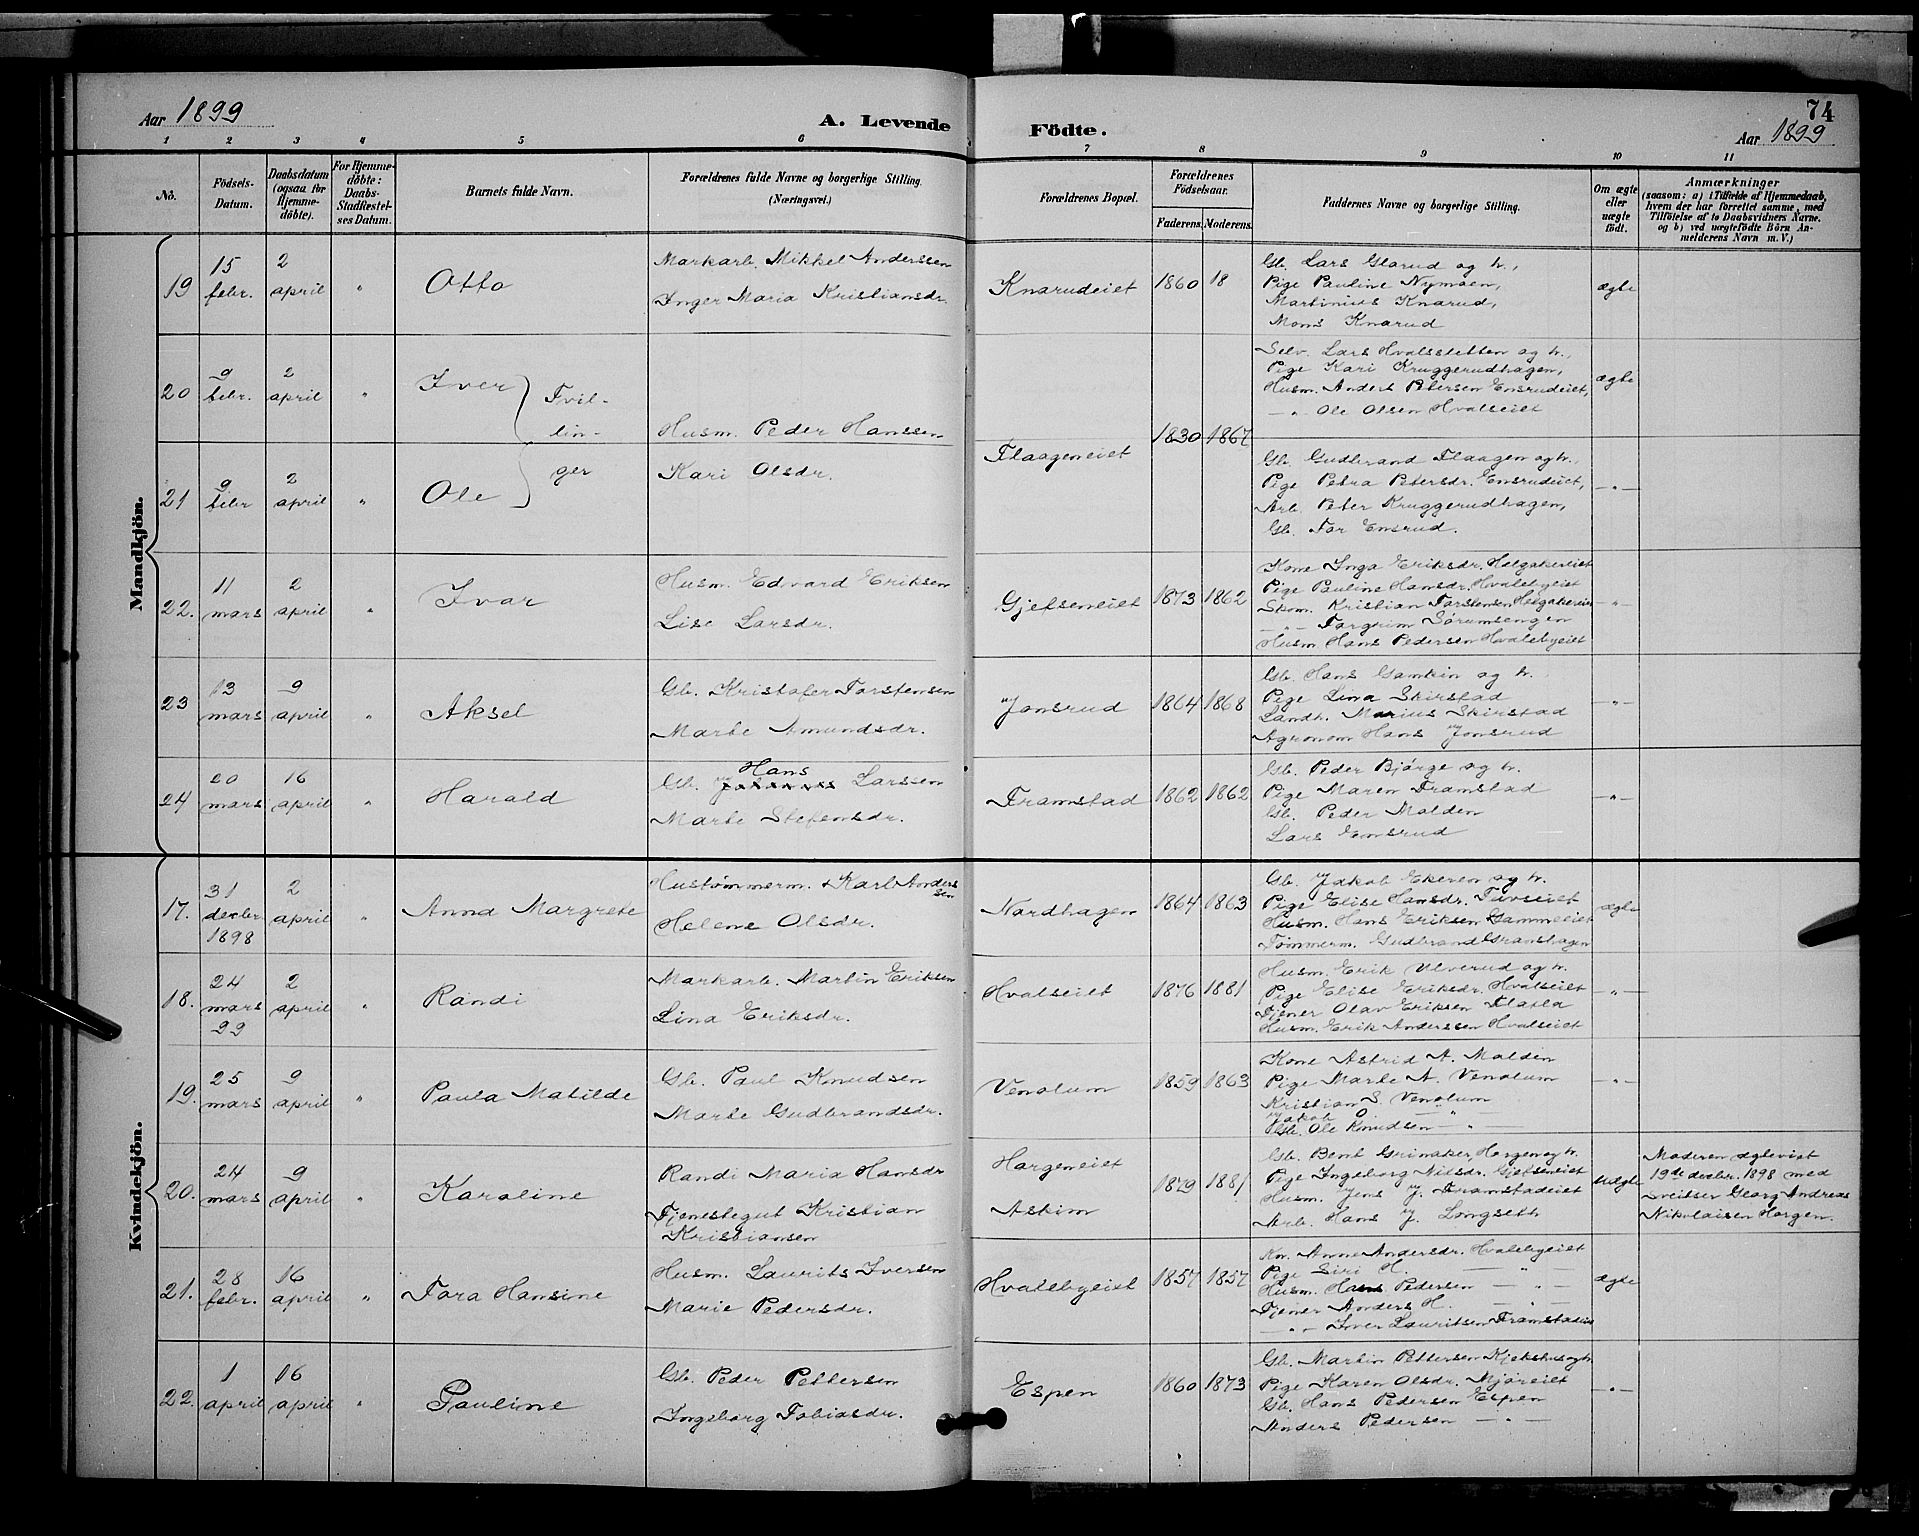 Aar 1899
A. Levende Födte.
74
Aar 1899
1 2 3 4 5 6 7 8 9 10 11
No.
Födsels-Datum.
Daabsdatum (ogsaa for Hjemme-döbte).
For Hjemme-döbte: Daabs-Stadfæstel-ses Datum.
Barnets fulde Navn.
Forældrenes fulde Navne og borgerlige Stilling. (Næringsvei.)
Forældrenes Bopæl.
Forældrenes Födselsaar.
Faderens. Moderens.
Faddernes Navne og borgerlige Stilling.
Om ægte eller uægte födt.
Anmærkninger
(saasom: a) i Tilfælde af Hjemmedaab, hvem der har forrettet samme, med Tilföielse af to Daabsvidners Navne. og b) ved uægtefödte Börn An-melderens Navn m. V.)
Mandkjön.
19 15 febr. 2 april " Otto
Markarb. Mikkel Anderssen
Inger Maria Kristiansdr.
Knarudeiet 1860 18
Gb. Lars Glorud og h.,
Pige Pauline Nymoen,
Martinius Knarud,
Mons Knarud
ægte
20 9 febr. 2 april " Iver
Tvil-
lin-
ger
Husm. Peder Hanssen
Kari Olsdr.
Flaageneiet 1830 1867
Selv. Lars Hvalsstetten og h.,
Pige Kari Kruggerudhagen,
Husm. Anders Petersen Ensrudeiet,
—"— Ole Olsen Hvalseiet
ægte
21 9 febr 2 april " Ole
Gb. Gudbrand Flaagen og h.,
Pige Petra Petersdr. Ensrudeiet,
Arb. Peter Kruggerudhagen,
Gb. Tor Ensrud.
—"—
22. 11 mars 2 april " Ivar
Husm. Edvard Eriksen
Lise Larsdr.
Gjefseneiet 1873 1862
Kone Inga Eriksdr. Helgakereiet
Pige Pauline Hansdr. Hvalebyeiet
Skom. Kristian Torstensen Helgakereiet
—"— Torgrim Sørumsengen
Husm Hans Pedersen Hvalebyeiet
—"—
23 13 mars 9 april " Aksel
Gb. Kristofer Torstensen
Marte Amundsdr.
Jonsrud 1864 1868
Gb. Hans Gamkin og h.
Pige Lina Skirstad
Landh. Marius Skirstad
Agronom Hans Jonsrud
—"—
24 20 mars 16 april " Harald
Hans
Gb. Larssen
Marte Stefensdr.
Framstad 1862 1862
Gb. Peder Bjørge og h.
Pige Maren Framstad
Gb. Peder Molden
Lars Ensrud
—"—
Kvindekjön.
17. 31 decbr. 1898 2 april " Anna Margrete
Hustømmerm. Karl Anders
sen
Helene Olsdr.
Nordhagen 1864 1863
Gb. Jakob Ekeren og h.
Pige Elise Hansdr. Tuvseiet
Husm. Hans Eriksen Gammeeiet
Tømmerm. Gudbrand Granshagen
ægte
18. 24 mars 99 2 april " Randi
Markarb. Martin Eriksen
Lina Eriksdr.
Hvalseiet 1876 1881
Husm. Erik Ulverud og h.
Pige Elise Eriksdr. Hvalseiet
Tjener Olav Eriksen Flatla
Husm. Erik Anderssen Hvalseiet
—"—
19. 25 mars 9 april " Paula Matilde
Gb. Paul Knudsen
Marte Gudbrandsdr.
Venolum 1859 1863
Kone Astrid A. Molden
Pige Marte A. Venolum
Kristian S. Venolum
Jakob O. —"—
Gb. Ole Knudsen —"—
—"—
20. 24 mars 9 april " Karoline
Randi Maria Hansdr
Tjenestegut Kristian
Kristiansen
Horgeneiet
Askim
1879 1881
Gb. Bent Grinaker, Horgen og h.
Pige Ingeborg Nilsdr. Gjefseneiet
Husm. Jens J. Framstadeiet
Arb. Hans J. Longseth
uægte
Moderen ægteviet
19de decbr. 1898 med
Sveitser Georg Andreas
Nikolaisen Horgen.
21. 28 febr. 16 april " Tora Hansine
Husm. Laurits Iversen
Marie Pedersdr.
Hvalebyeiet 1857 1857
Kn. Anne Andersdr. Hvalebyeiet
Pige Siri H. —"—
Husm. Hans Pedersen —"—
Tjener Anders H. —"—
—"— Iver Lauritsen Framstadeie
ægte
22. 1 april 16 april " Pauline
Gb. Peder Pettersen
Ingeborg Tobiasdr.
Espen 1860 1873
Gb. Martin Pettersen Kjekshus og h.
Pige Karen Olsdr. Mjøreiet
Gb. Hans Pedersen Espen
Anders Pedersen —"—
—"—